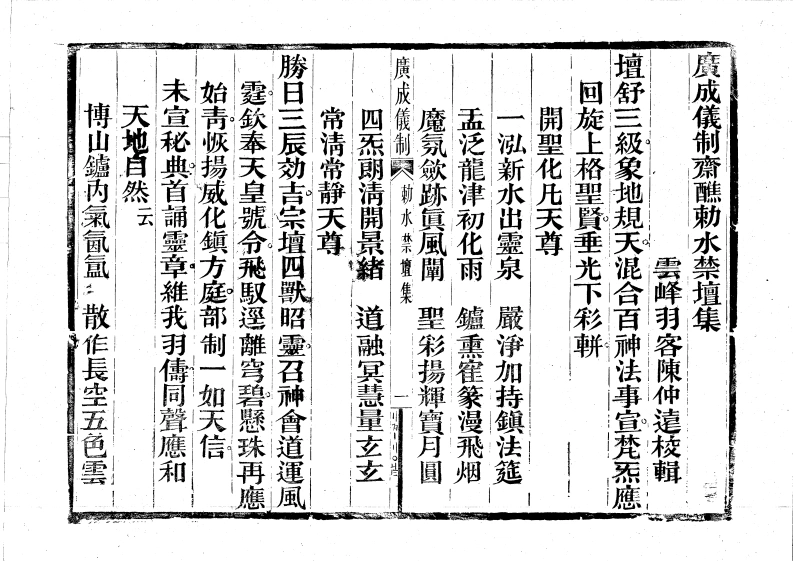 廣成儀制齋醮勅水禁壇集
雲峰羽客陳仲遠校輯
壇舒三級象地規天混合百神法事宣梵炁應
回旋上格聖賢垂光下彩輧
開聖化凡天尊
一泓新水出靈泉　嚴淨加持鎮法筵
盂泛龍津初化雨　鑪熏寉篆漫飛烟
魔氛歛跡眞風闡　聖彩揚輝寶月圓
四炁朗清開景緒　道融冥慧量玄玄
廣成儀制　勅水禁壇集　一
常淸常靜天尊
勝日三辰効吉宗壇四獸昭靈召神會道運風
霆欽奉天皇號令飛馭逕離穹碧懸珠再應
始靑恢揚威化鎮方庭部制一如天信
未宣秘典首誦靈章維我羽儔同聲應和
天地自然云
博山鑪內氣氤氳　散作長空五色雲